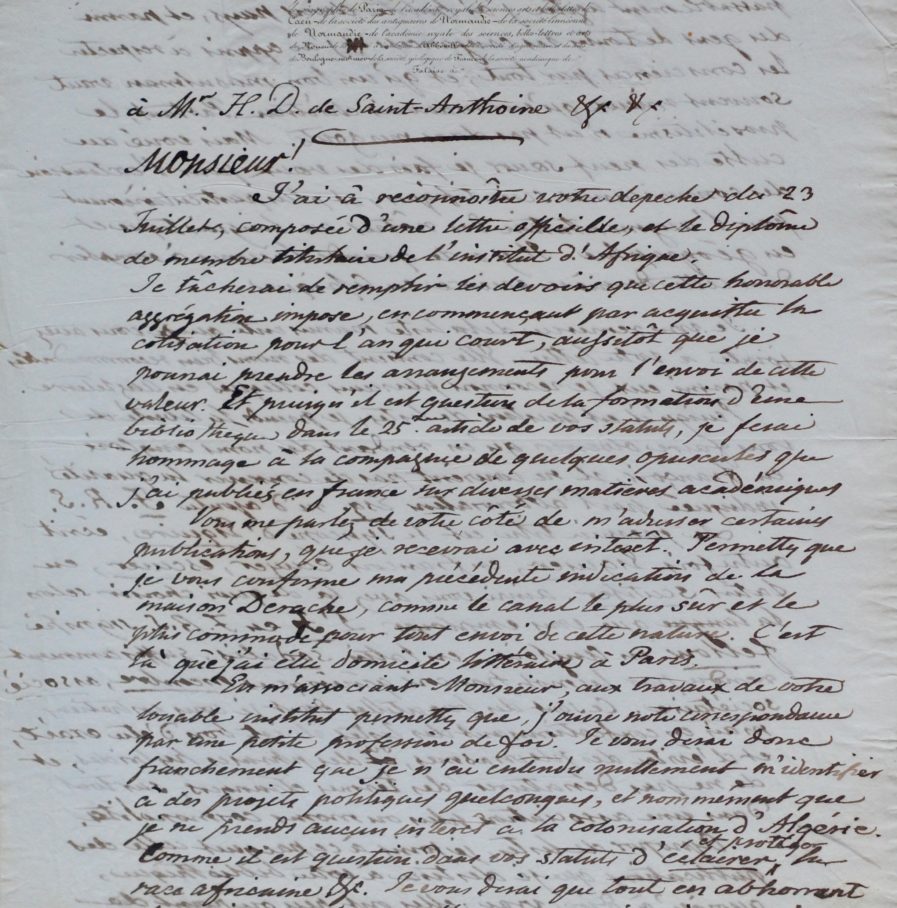 géographie de Paris
Caen - de la société des antiquaires de Normandie - de la société linnéenne
de Normandie - de l'académie royale des sciences, belles-lettres et arts
de Rouen
de Boulogne-sur-mer - de la société géologique de France - de la société académique de
Falaise
à Mr. H. D. de Saint-Anthoine &c &c
Monsieur!
J'ai à reconnoître votre depeche du 23
Juillet, composée d'une lettre officielle, et le diplôme
de membre titulaire de l'institut d'Afrique.
Je tâcherai de remplir les devoirs que cette honorable
aggrégation impose, en commençant par acquitter la
cotisation pour l'an qui court, aussitôt que je
pourrai prendre les arrangements pour l'envoi de cette
valeur. Et puisqu'il est question de la formation d'une
bibliothèque dans le 25e. article de vos statuts, je ferai
hommage à la compagnie de quelques opuscules que
j'ai publiés en france sur diverses matières académiques
Vous me parlez de votre côté de m'adresser certaines
publications, que je recevrai avec intérêt. Permettez que
je vous confirme ma précédente indication de la
maison Derache, comme le canal le plus sûr et le
plus commode pour tout envoi de cette nature. C'est
là que j'ai élu domicile littéraire à Paris.
En m'associant Monsieur, aux travaux de votre
louable institut permettez que j'ouvre notre correspondance
par une petite profession de foi. Je vous dirai donc
franchement que je n'ai entendu nullement m'identifier
à des projets politiques quelconques, et nommément que
je ne prends aucun intérêt à la colonisation d'Algérie.
Comme il est question dans vos statuts d'éclairer, et protéger la
race africaine &c. Je vous dirai que tout en abhorrant